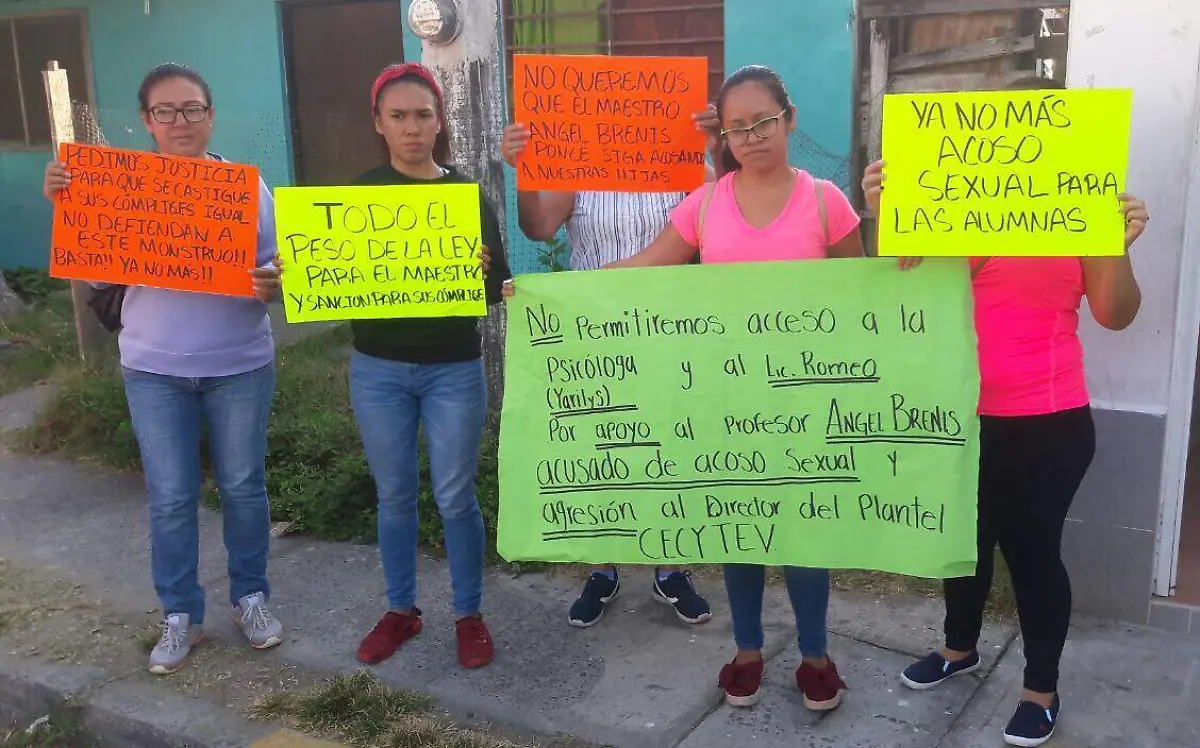 PEDIMOS JUSTICIA
PARA QUE SE CASTIGUE
A SUS CÓMPLICES IGUAL
NO DEFIENDAN A
ESTE MONSTRUO!!
BASTA!! YA NO MÁS!!
TODO EL
PESO DE LA LEY
PARA EL MAESTRO
Y SANCION PARA SUS CÓMPLICE
NO QUEREMOS
QUE EL MAESTRO
ANGEL BRENIS
PONCE SIGA ACOSANDO
A NUESTRAS HIJAS
YA NO MÁS
ACOSO
SEXUAL PARA
LAS ALUMNAS
No Permitiremos acceso a la
Psicóloga y al Lic. Romeo
(Yarilys)
Por apoyo al Profesor ANGEL BRENIS
acusado de acoso Sexual y
agresión al Director del Plantel
CECYTEV